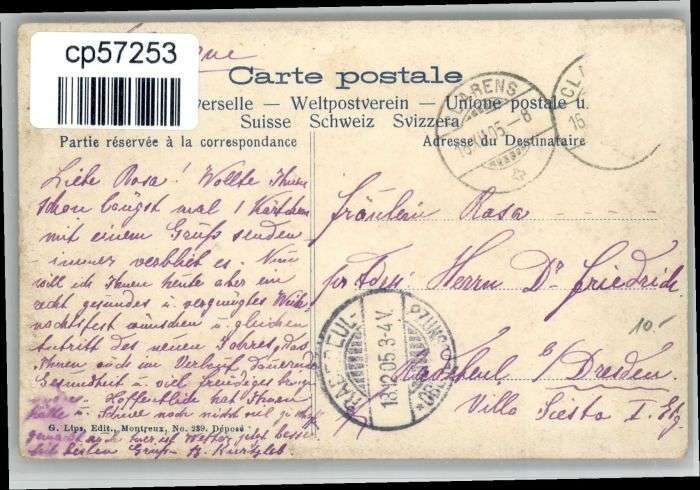 cp57253
Carte postale
erselle — Weltpostverein — Unione postale u.
Suisse Schweiz Svizzera
Partie réservée à la correspondance
Adresse du Destinataire
CLARENS
16.XII.05.-8
CL
16
Liebe Rosa! Wollte Ihnen
schon längst mal 1 Kärtchen
mit einem Gruß senden
immer verblieb es. Nun
will ich Ihnen heute aber ein
recht gesundes u vergnügtes Weih-
nachtsfest wünschen u gleichen
Eintritt des neuen Jahres, das
Ihnen auch im Verlauf dauernde
Gesundheit u viel freudiges bringen
Hoffentlich hat Ihnen
u noch nicht viel
jetzt besser
besten Gruß
Fräulein Rosa
pr Adr. Herrn Dr Friedrich
Radebeul b/ Dresden
Villa Siesta I. Etg
10.-
RADEBEUL-
18.12.05.3-4V.
G. Lips, Edit., Montreux, No. 239. Déposé